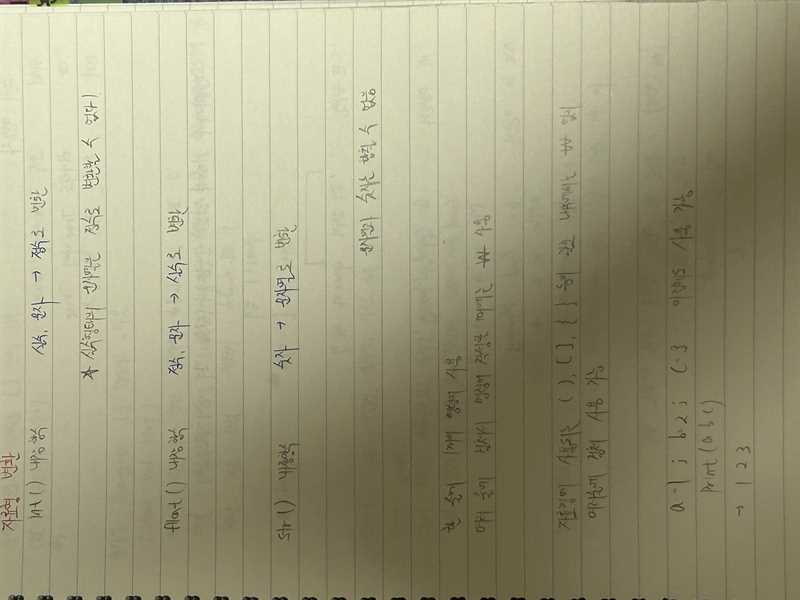 자료형 변환
int() 내장함수 실수, 문자 → 정수로 변환
* 실수형태의 문자열은 정수로 변환할 수 없다!
float() 내장함수 정수, 문자 → 실수로 변환
str() 내장함수 숫자 → 문자열로 변환
문자열과 숫자는 합칠 수 없음
한 줄에 1개의 명령어 사용
여러 줄에 걸쳐서 명령어 작성할 때에는 ₩ 사용
자료형에 사용되는 ( ), [ ], { } 등의 괄호 내에서는 ₩ 없이
여러줄에 걸쳐 사용 가능
a=1; b=2; c=3 이렇게도 사용 가능
print(a b c)
→ 1 2 3